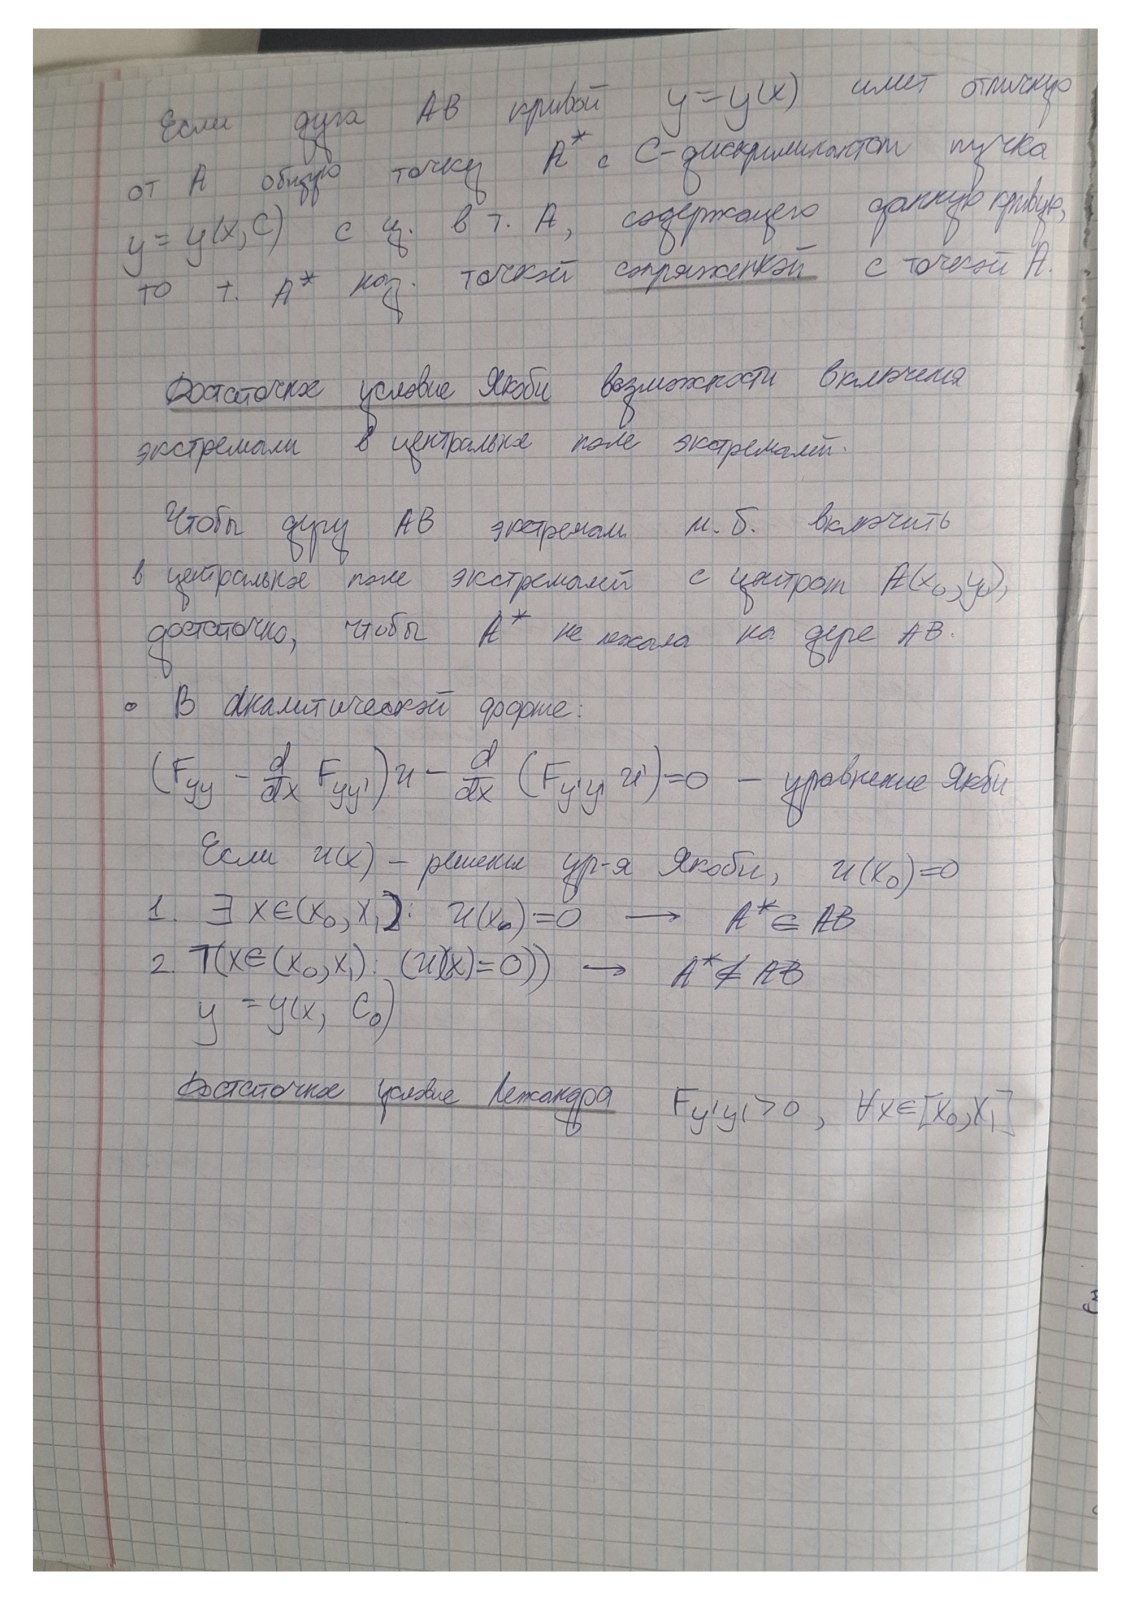 Если дуга AB кривой y=y(x) имеет отличную
от A общую точку A* с C-дискриминантом пучка
y=y(x,C) с ц. в т. A, содержащего данную кривую,
то т. A* наз. точкой сопряженной с точкой A.
Достаточное условие Якоби возможности включения
экстремали в центральное поле экстремалей.
Чтобы дугу AB экстремали м.б. включить
в центральное поле экстремалей с центром A(x₀,y₀),
достаточно, чтобы A* не лежала на дуге AB.
∘ В аналитической форме:
(F_yy - d/dx F_yy')u - d/dx (F_y'y' u')=0 – уравнение Якоби
Если u(x) – решение ур-я Якоби, u(x₀)=0
1. ∃ x∈(x₀,x₁): u(x₀)=0 → A* ∈ AB
2. ¬(x∈(x₀,x₁): (u)(x)=0)) → A* ∉ AB
y =y(x, C₀)
Достаточное условие Лежандра F_y'y'>0, ∀x∈[x₀,x₁]